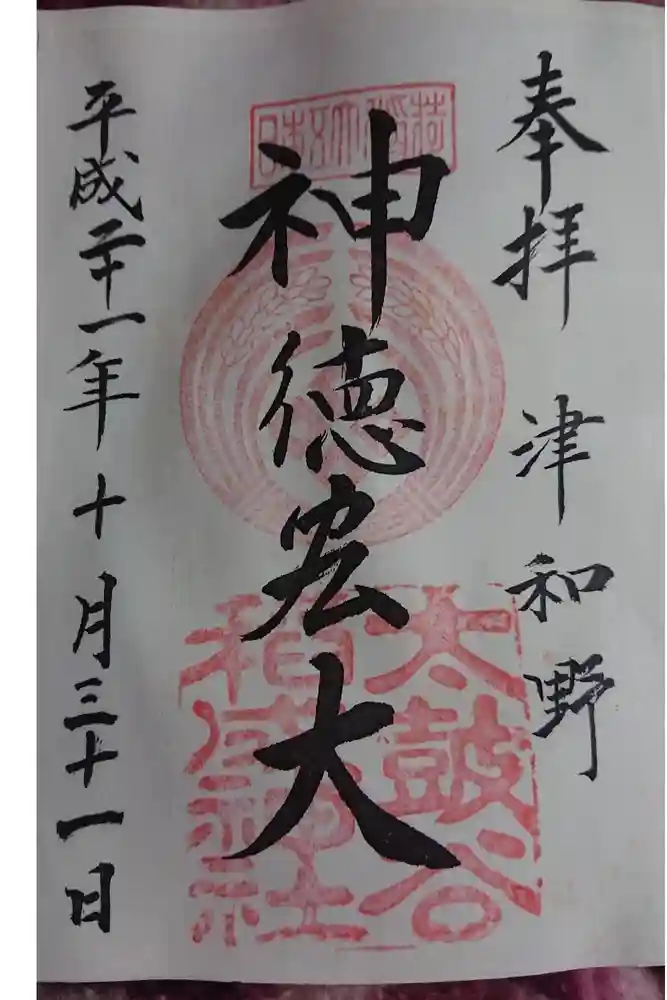 奉拝 津和野
日本五大稲荷
神徳宏大
太鼓谷
稲成神社
平成二十一年十月三十一日